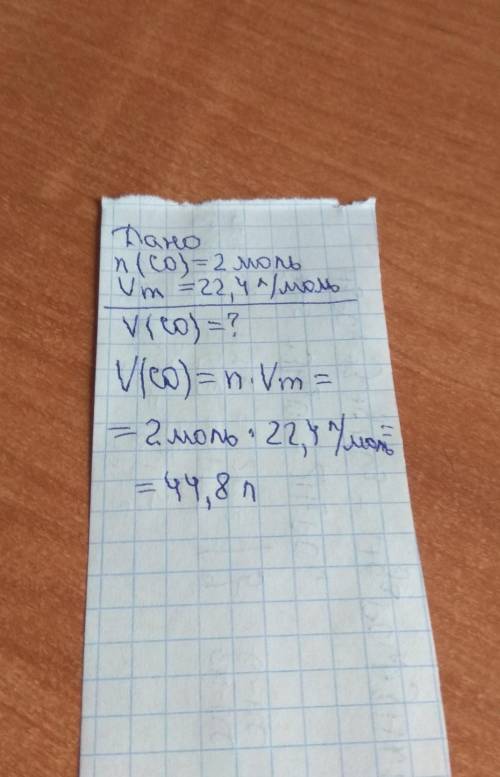 Дано
n(CO)=2 моль
Vm =22,4 л/моль
V(CO)=?
V(CO)= n·Vm =
= 2 моль · 22,4 л/моль =
= 44,8 л